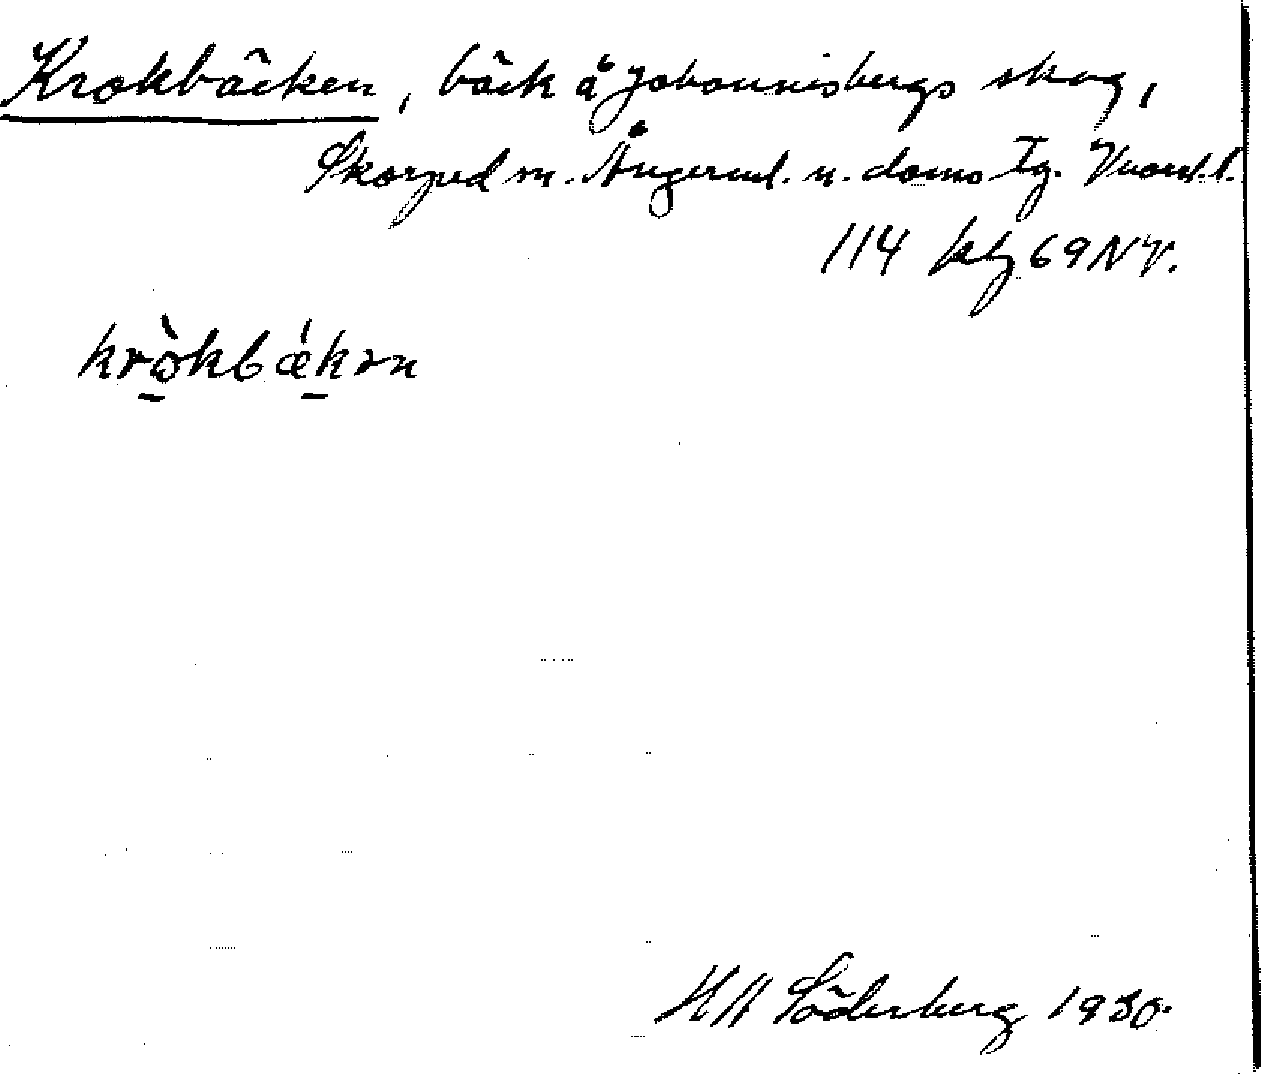 Krokbäcken, bäck å Johannisbergs skog,
Skorped sn. Ångerml. n. doms Tg.
114 kbj 69 NV.
kròkbǽkən
HH Söderberg 1930.